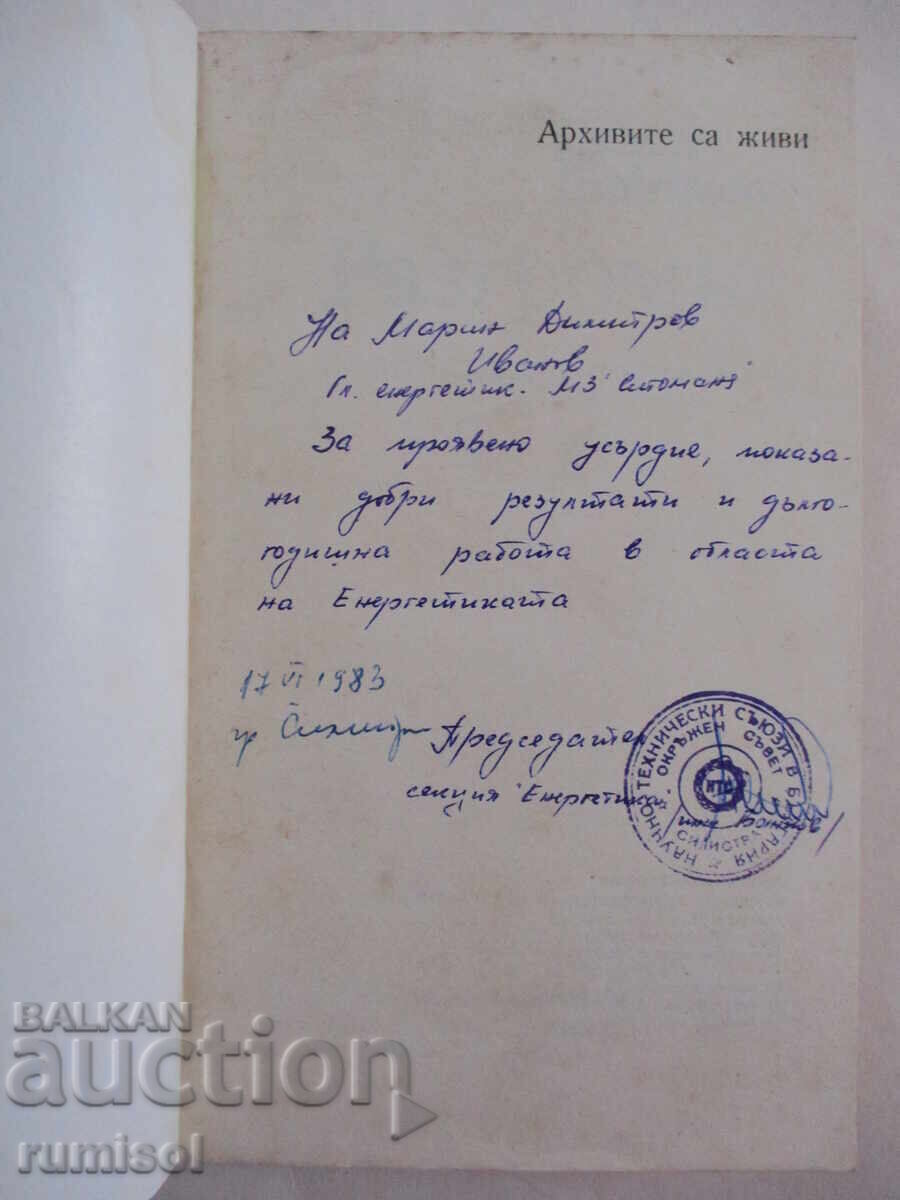 Архивите са живи
На Марин Димитров
Иванов
Гл. енергетик. МЗ "Стомана"
За проявено усърдие, показа-
ни добри резултати и дълго-
годишна работа в областа
на Енергетиката
17 VI 1983
гр
Председател
секция "Енергетика"
инж
НАУЧНО-ТЕХНИЧЕСКИ СЪЮЗИ В БЪЛГАРИЯ
ОКРЪЖЕН СЪВЕТ
НТС
СИЛИСТРА
BALKAN
auction
rumisol